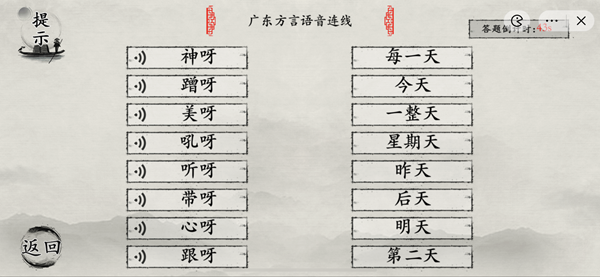 提示
广东方言语音连线
答题倒计时:43s
神呀
每一天
蹭呀
今天
美呀
一整天
吼呀
星期天
听呀
昨天
带呀
后天
心呀
明天
跟呀
第二天
返回